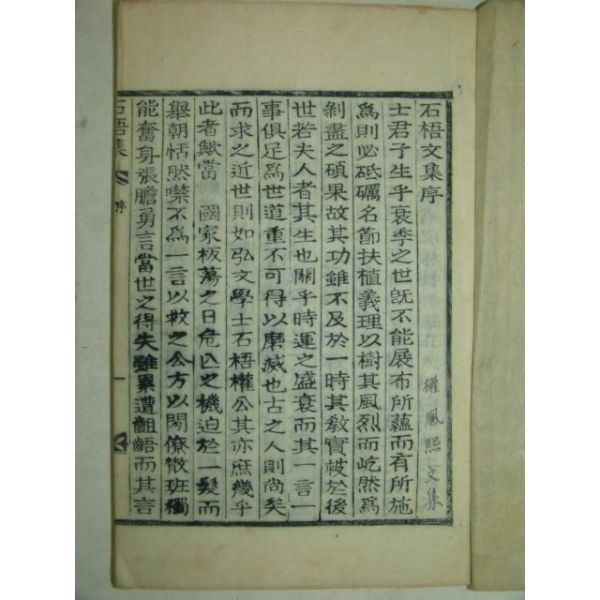 石梧文集序
士君子生乎衰季之世旣不能展布所蘊而有所施
爲則必砥礪名節扶植義理以樹其風烈而屹然爲
剝盡之碩果故其功雖不及於一時其敎實被於後
世若夫人者其生也關乎時運之盛衰而其一言一
事俱足爲世道重不可得以磨滅也古之人則尙矣
而求之近世則如弘文學士石梧權公其亦庶幾乎
此者歟當 國家板蕩之日危亡之機迫於一髮而
擧朝恬然噤不爲一言以救之公方以閑僚散班獨
能奮身張膽勇言當世之得失雖累遭齟齬而其言
石梧集
序
一
權鳳熙文集